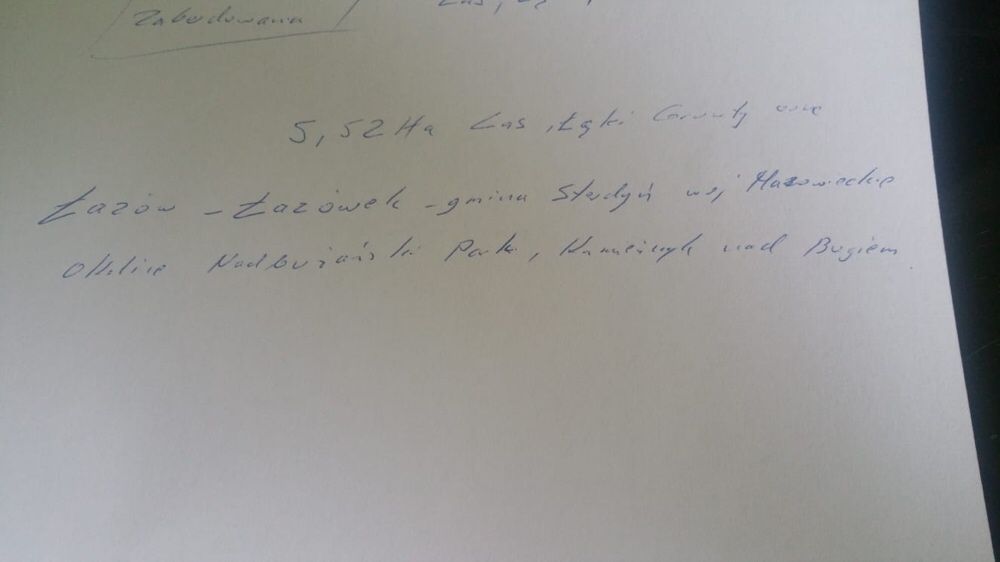 Zabudowana Las,
5,52 Ha Las, Łąki Grunty orne
Łazów - Łazówek - gmina Sterdyń woj Mazowieckie
Okolice Nadbużański Park, Kamieńczyk nad Bugiem.